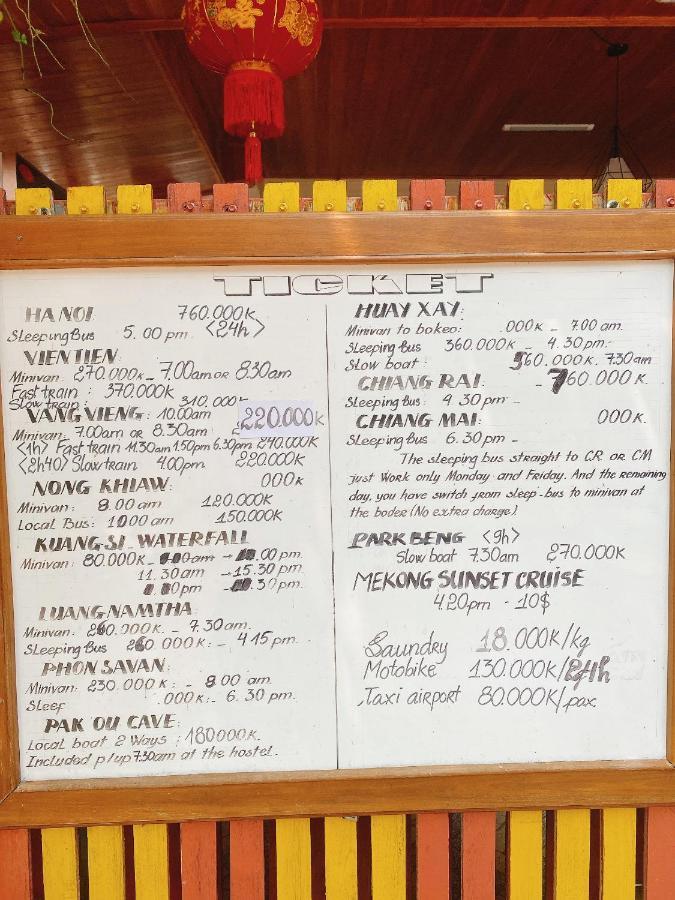 TICKET
HANOI 760.000K
Sleeping Bus 5.00 pm <24h>
VIENTIEN:
Minivan: 270.000K _ 7.00am or 8.30am
Fast train : 370.000K
Slow train : 310.000K
VANG VIENG: 10.00am 220.000K
Minivan: 7.00am or 8.30am
<1h> Fast train 11.30am 1.50pm 6.30pm 240.000K
<2h40> Slow train 4.00pm 220.000K
NONG KHIAW: 000K
Minivan: 8.00 am 120.000K
Local Bus: 10.00 am 150.000K
KUANG-SI WATERFALL
Minivan: 80.000K _ .00 pm
11.30am → 15.30 pm
.30pm
LUANG NAMTHA:
Minivan: 260.000K _ 7.30 am.
Sleeping Bus 260.000K: _ 4.15 pm.
PHONSAVAN:
Minivan: 230.000K: _ 8.00 am
Sleep .000K: _ 6.30 pm.
PAK OU CAVE:
Local boat 2 Ways : 180.000K.
Included p/up 7.30am at the hostel.
HUAY XAY:
Minivan to bokeo: .000K _ 7.00 am.
Sleeping Bus 360.000K _ 4.30 pm.
Slow boat : 560.000K. 7.30am
CHIANG RAI: - 760.000K.
Sleeping Bus: 4.30 pm -
CHIANG MAI: 000K.
Sleeping Bus 6.30 pm -
The sleeping bus straight to CR or CM
just Work only Monday and Friday. And the remaining
day, you have switch from sleep-bus to minivan at
the boder (No extra charge)
PARK BENG <9h>
Slow boat 7.30am 270.000K
MEKONG SUNSET CRUISE
4.20pm - 10$
Laundry 18.000K/kg
Motobike 130.000K/24h
Taxi airport 80.000K/pax